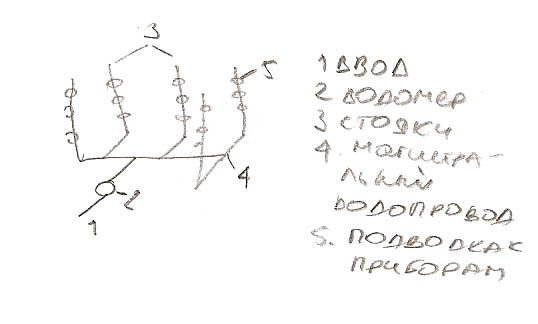 3
5
4
2
1
1 ВВОД
2 ВОДОМЕР
3 СТОЯКИ
4. МАГИСТРА-
ЛЬНЫЙ
ВОДОПРОВОД
5. ПОДВОДКАК
ПРИБОРАМ